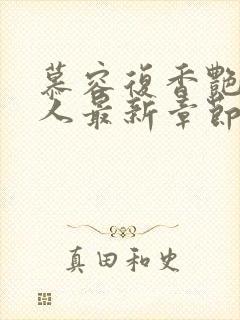 慕容復香艷
人最新章節
真田和史